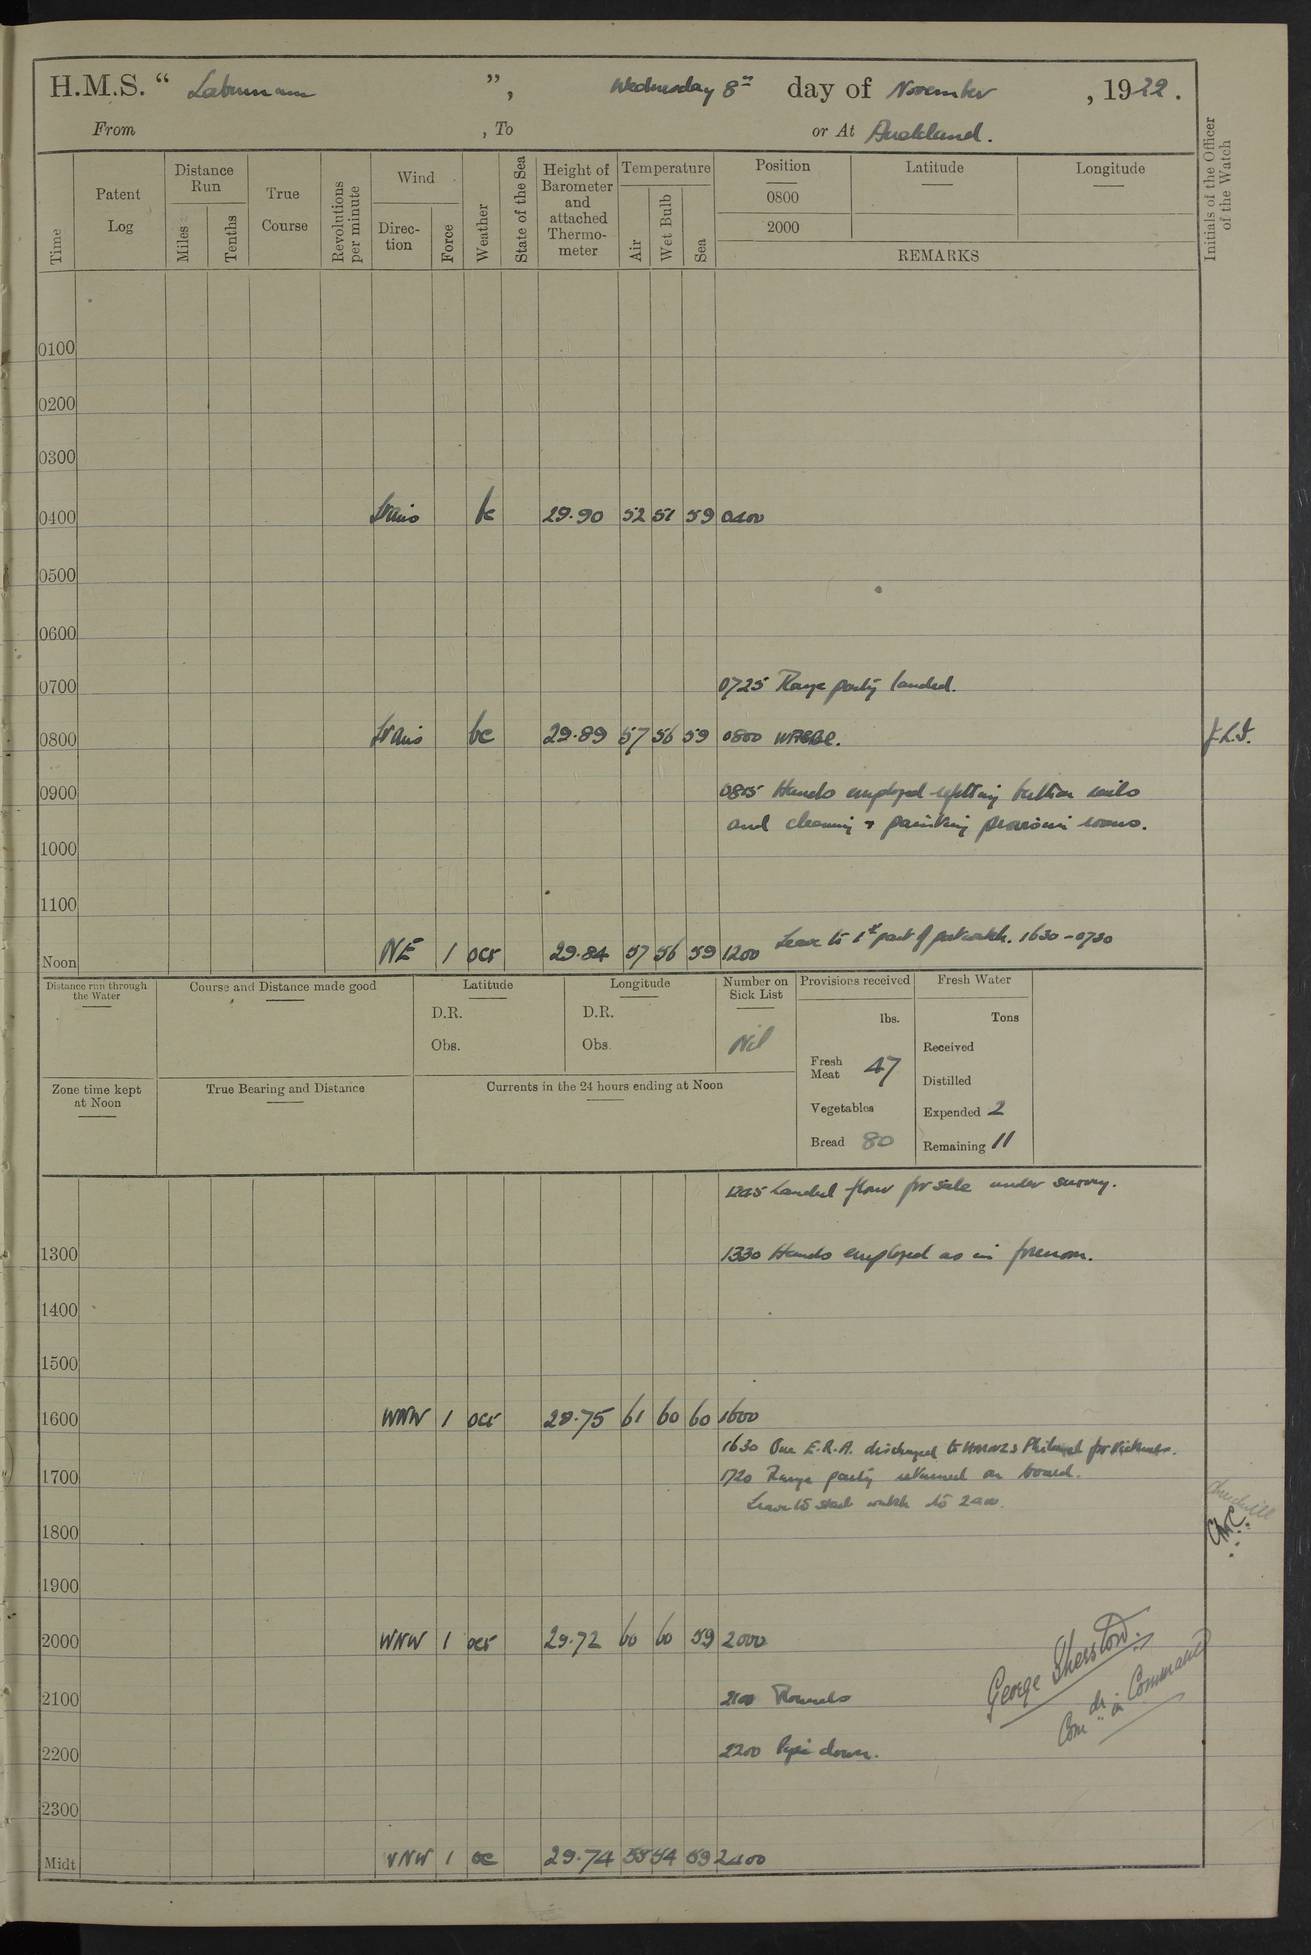 H.M.S. “ Laburnum ”, Wednesday 8th day of November, 1922.
From , To or At Auckland.
Time
Patent Log
Distance Run
Miles
Tenths
True Course
Revolutions per minute
Wind
Direction
Force
Weather
State of the Sea
Height of Barometer and attached Thermometer
Temperature
Air
Wet Bulb
Sea
Position
Latitude
Longitude
0800
2000
REMARKS
Initials of the Officer of the Watch
0100
0200
0300
0400 bc 29.90 52 51 59 0400
0500
0600
0700 0725 Range party landed.
0800 bc 29.89 57 56 59 0800
0900 0815 Hands employed refitting sails
and cleaning & painting provision rooms.
1000
1100
Noon NE 1 ocr 29.84 57 56 59 1200 Leave to 1st part of port watch. 1630-0730
Distance run through the Water
Course and Distance made good
Latitude
D.R.
Obs.
Longitude
D.R.
Obs.
Number on Sick List
Nil
Provisions received
lbs.
Fresh Meat 47
Vegetables
Bread 80
Fresh Water
Tons
Received
Distilled
Expended 2
Remaining 11
Zone time kept at Noon
True Bearing and Distance
Currents in the 24 hours ending at Noon
1245 Landed flour for sale under survey.
1300 1330 Hands employed as in forenoon.
1400
1500
1600 WNW 1 ocr 29.75 61 60 60 1600
1630 One E.R.A. discharged to Philomel for
1700 1720 Range party returned on board.
Leave to watch to 2400.
1800
1900
2000 WNW 1 ocr 29.72 60 60 59 2000
2100 2100 Rounds
2200 2200 Pipe down.
2300
Midt WNW 1 oc 29.74 55 54 59 2400
George Sherston.
Comdr in Command